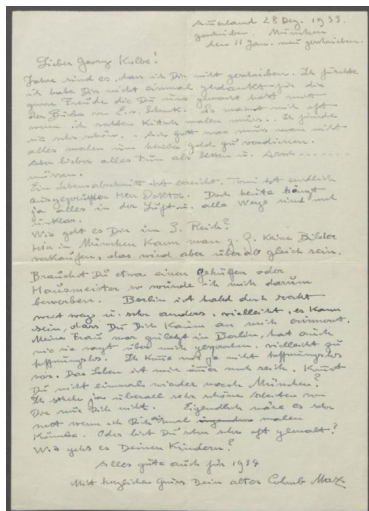 28 Dez. 1933.
geschrieben. München
den 11 Jan. neu geschrieben.
Lieber Georg Kolbe!
Jahre sind es, dass ich Dir nicht geschrieben. Ich
ich habe Dir nicht einmal gedankt für die
Freude die Du uns gemacht hast mit
der Büste von
wenn ich solchen Kitsch malen muss.. Ich finde
sie sehr schön. was muss man nicht
alles malen um Geld zu verdienen.
Aber lieber alles tun als
müssen.
Ein Lebensabschnitt ist erreicht. Toni ist endlich
Herr Doktor. Doch heute hängt
ja alles in der Luft u. alle Wege sind
unklar.
Wie geht es Dir im 3. Reich?
Hier in München kann man z. Z. keine Bilder
verkaufen, das wird aber überall gleich sein.
Brauchst Du etwa einen Gehülfen oder
Hausmeister so würde ich mich darum
bewerben. Berlin ist halt doch recht
weit weg u. sehr anders, vielleicht, es kann
sein, dass Du Dich kaum an mich erinnerst.
Meine Frau war zuletzt in Berlin, hat auch
wie sie sagt über mich gegeben, vielleicht zu
hoffnungslos. Ich kam mir ja nicht hoffnungslos
vor. Das Leben ist mir immer noch reich. Kommst
Du nicht einmal wieder nach München?
Ich sehe ja überall sehr schöne Arbeiten von
Dir nur Dich nicht. Eigentlich wäre es sehr
nett wenn ich Dich einmal malen
könnte. Oder bist Du schon sehr oft gemalt?
Wie geht es Deinen Kindern?
Alles gute auch für 1934
Mit herzlichen Gruss Dein alter Max.